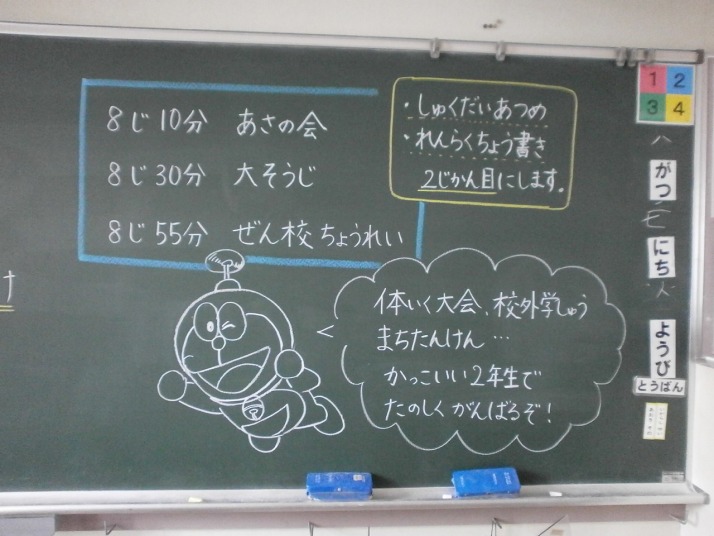 8じ10分 あさの会
8じ30分 大そうじ
8じ55分 ぜん校ちょうれい
・しゅくだいあつめ
・れんらくちょう書き
2じかん目にします。
体いく大会、校外学しゅう
まちたんけん…
かっこいい2年生で
たのしくがんばるぞ!
1 2
3 4
がつ
にち
ようび
とうばん